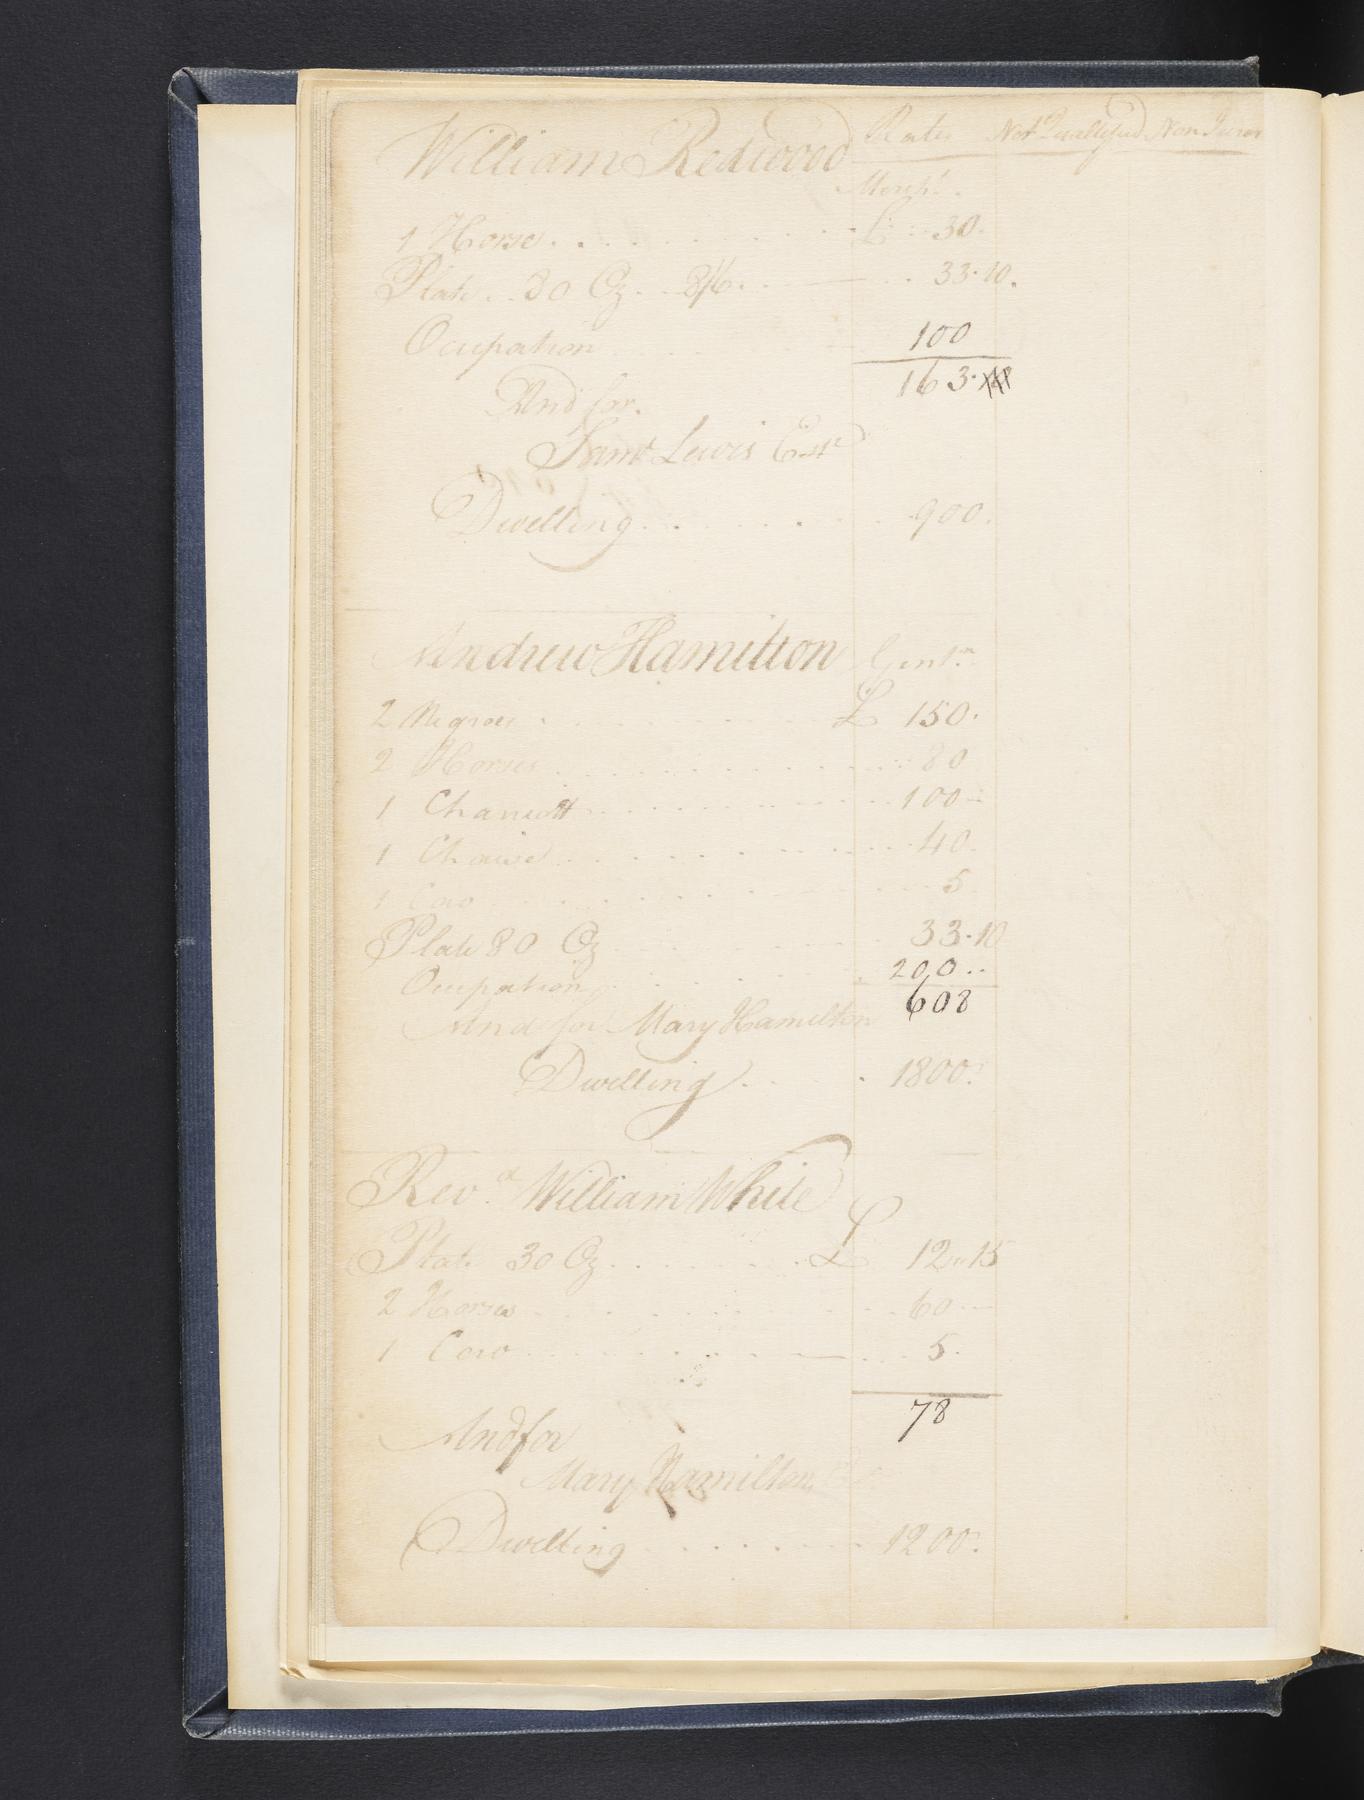 William Redwood Rates Not Qualifyed Non Juror
Mercht.
1 Horse . . . . . . £ 30.
Plate . . 80 Oz . . 8/6 . . 33.10.
Ocupation 100
163.
And for.
Saml Lewis Estt
Dwelling . . . . . 900.
Andrew Hamilton Gentn
2 Negroes . . . . . £ 150.
2 Horses . . . . . 80
1 Chariott . . . . . 100
1 Chaise . . . . . 40.
1 Cow . . . . . 5
Plate 80 Oz 33.10
Ocupation . . . . . 200..
And for Mary Hamilton 608
Dwelling . . . . . 1800.
Revd. William White
Plate 30 Oz . . . . . £ 12..15
2 Horses . . . . . 60
1 Cow . . . . . 5.
78
And for
Mary Hamilton
Dwelling . . . . . 1200.